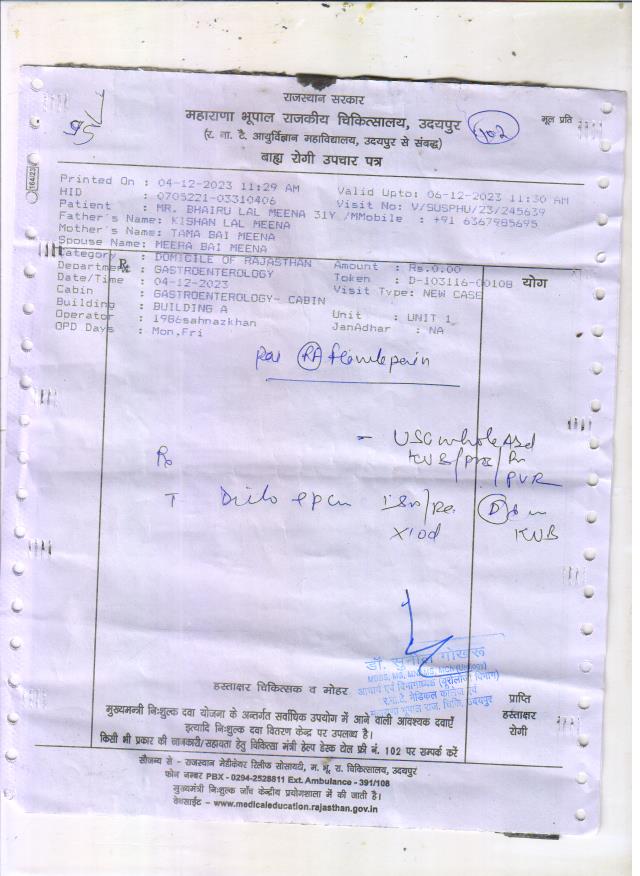 राजस्थान सरकार
महाराणा भूपाल राजकीय चिकित्सालय, उदयपुर
102
मूल प्रति
(र. ना. टै. आयुर्विज्ञान महाविद्यालय, उदयपुर से संबद्ध)
बाह्य रोगी उपचार पत्र
164/23
Printed On : 04-12-2023 11:29 AM Valid Upto: 06-12-2023 11:30 AM
HID : 0705221-03310406 Visit No: V/SUSPHU/23/245639
Patient : MR. BHAIRU LAL MEENA 31Y /MMobile : +91 6367985695
Father's Name: KISHAN LAL MEENA
Mother's Name: TAMA BAI MEENA
Spouse Name: MEERA BAI MEENA
Category : DOMICILE OF RAJASTHAN Amount : Rs.0.00
Department : GASTROENTEROLOGY Token : D-103116-0010B
Date/Time : 04-12-2023 Visit Type: NEW CASE
Cabin : GASTROENTEROLOGY- CABIN
Building : BUILDING A Unit : UNIT 1
Operator : 1986sahnazkhan JanAdhar : NA
OPD Days : Mon,Fri
Rx
योग
- USG whole Abd
KUB/
PVR
T
KUB
X10d
डॉ. सुनील गोखरू
आचार्य एवं विभागाध्यक्ष (यूरोलोजी विभाग)
हस्ताक्षर चिकित्सक व मोहर
प्राप्ति
हस्ताक्षर
रोगी
मुख्यमन्त्री निःशुल्क दवा योजना के अन्तर्गत सर्वाधिक उपयोग में आने वाली आवश्यक दवाएँ
इत्यादि निःशुल्क दवा वितरण केन्द्र पर उपलब्ध है।
किसी भी प्रकार की जानकारी/सहायता हेतु चिकित्सा मंत्री हेल्प डेस्क टोल फ्री नं. 102 पर सम्पर्क करें
सौजन्य से - राजस्थान मेडीकेयर रिलीफ सोसायटी, म. भू. रा. चिकित्सालय, उदयपुर
फोन नम्बर PBX - 0294-2528811 Ext. Ambulance - 391/108
मुख्यमंत्री निःशुल्क जाँच केन्द्रीय प्रयोगशाला में की जाती है।
वेबसाईट - www.medicaleducation.rajasthan.gov.in